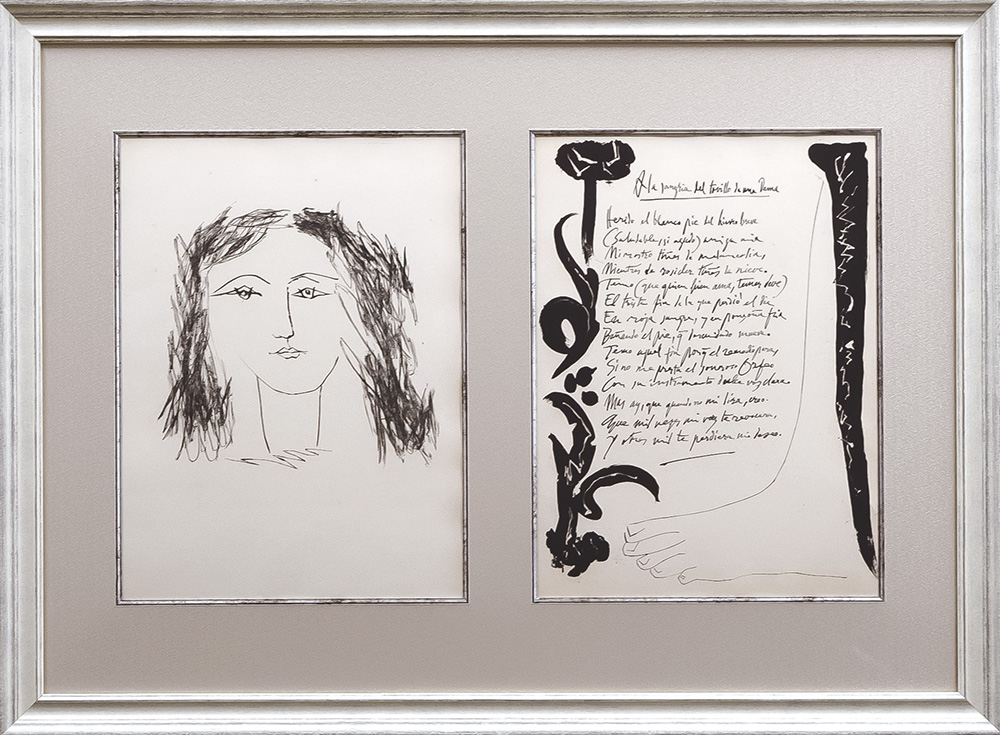 A la sangria del tovillo de una Dama
Herido el blanco pie del hierro breve
(Saludable, si agudo) amiga mia
Mi rostro tiñes de melancolia,
Mientras de rosicler tiñes la nieve.
Temo (que quien bien ama, temer deve)
El triste fin de la que perdió el dia,
En roja sangre, y en ponzoña fria
Bañado el pie, q descuidado mueve.
Temo aquel fin porq el remedio para,
Si no me presta el sonoroso Orfeo
Con su instrumento dulce voz clara.
Mas ay, que quando no mi lira, creo
Que mil vezes mi voz te revocara,
Y otras mil te perdiera mi deseo.